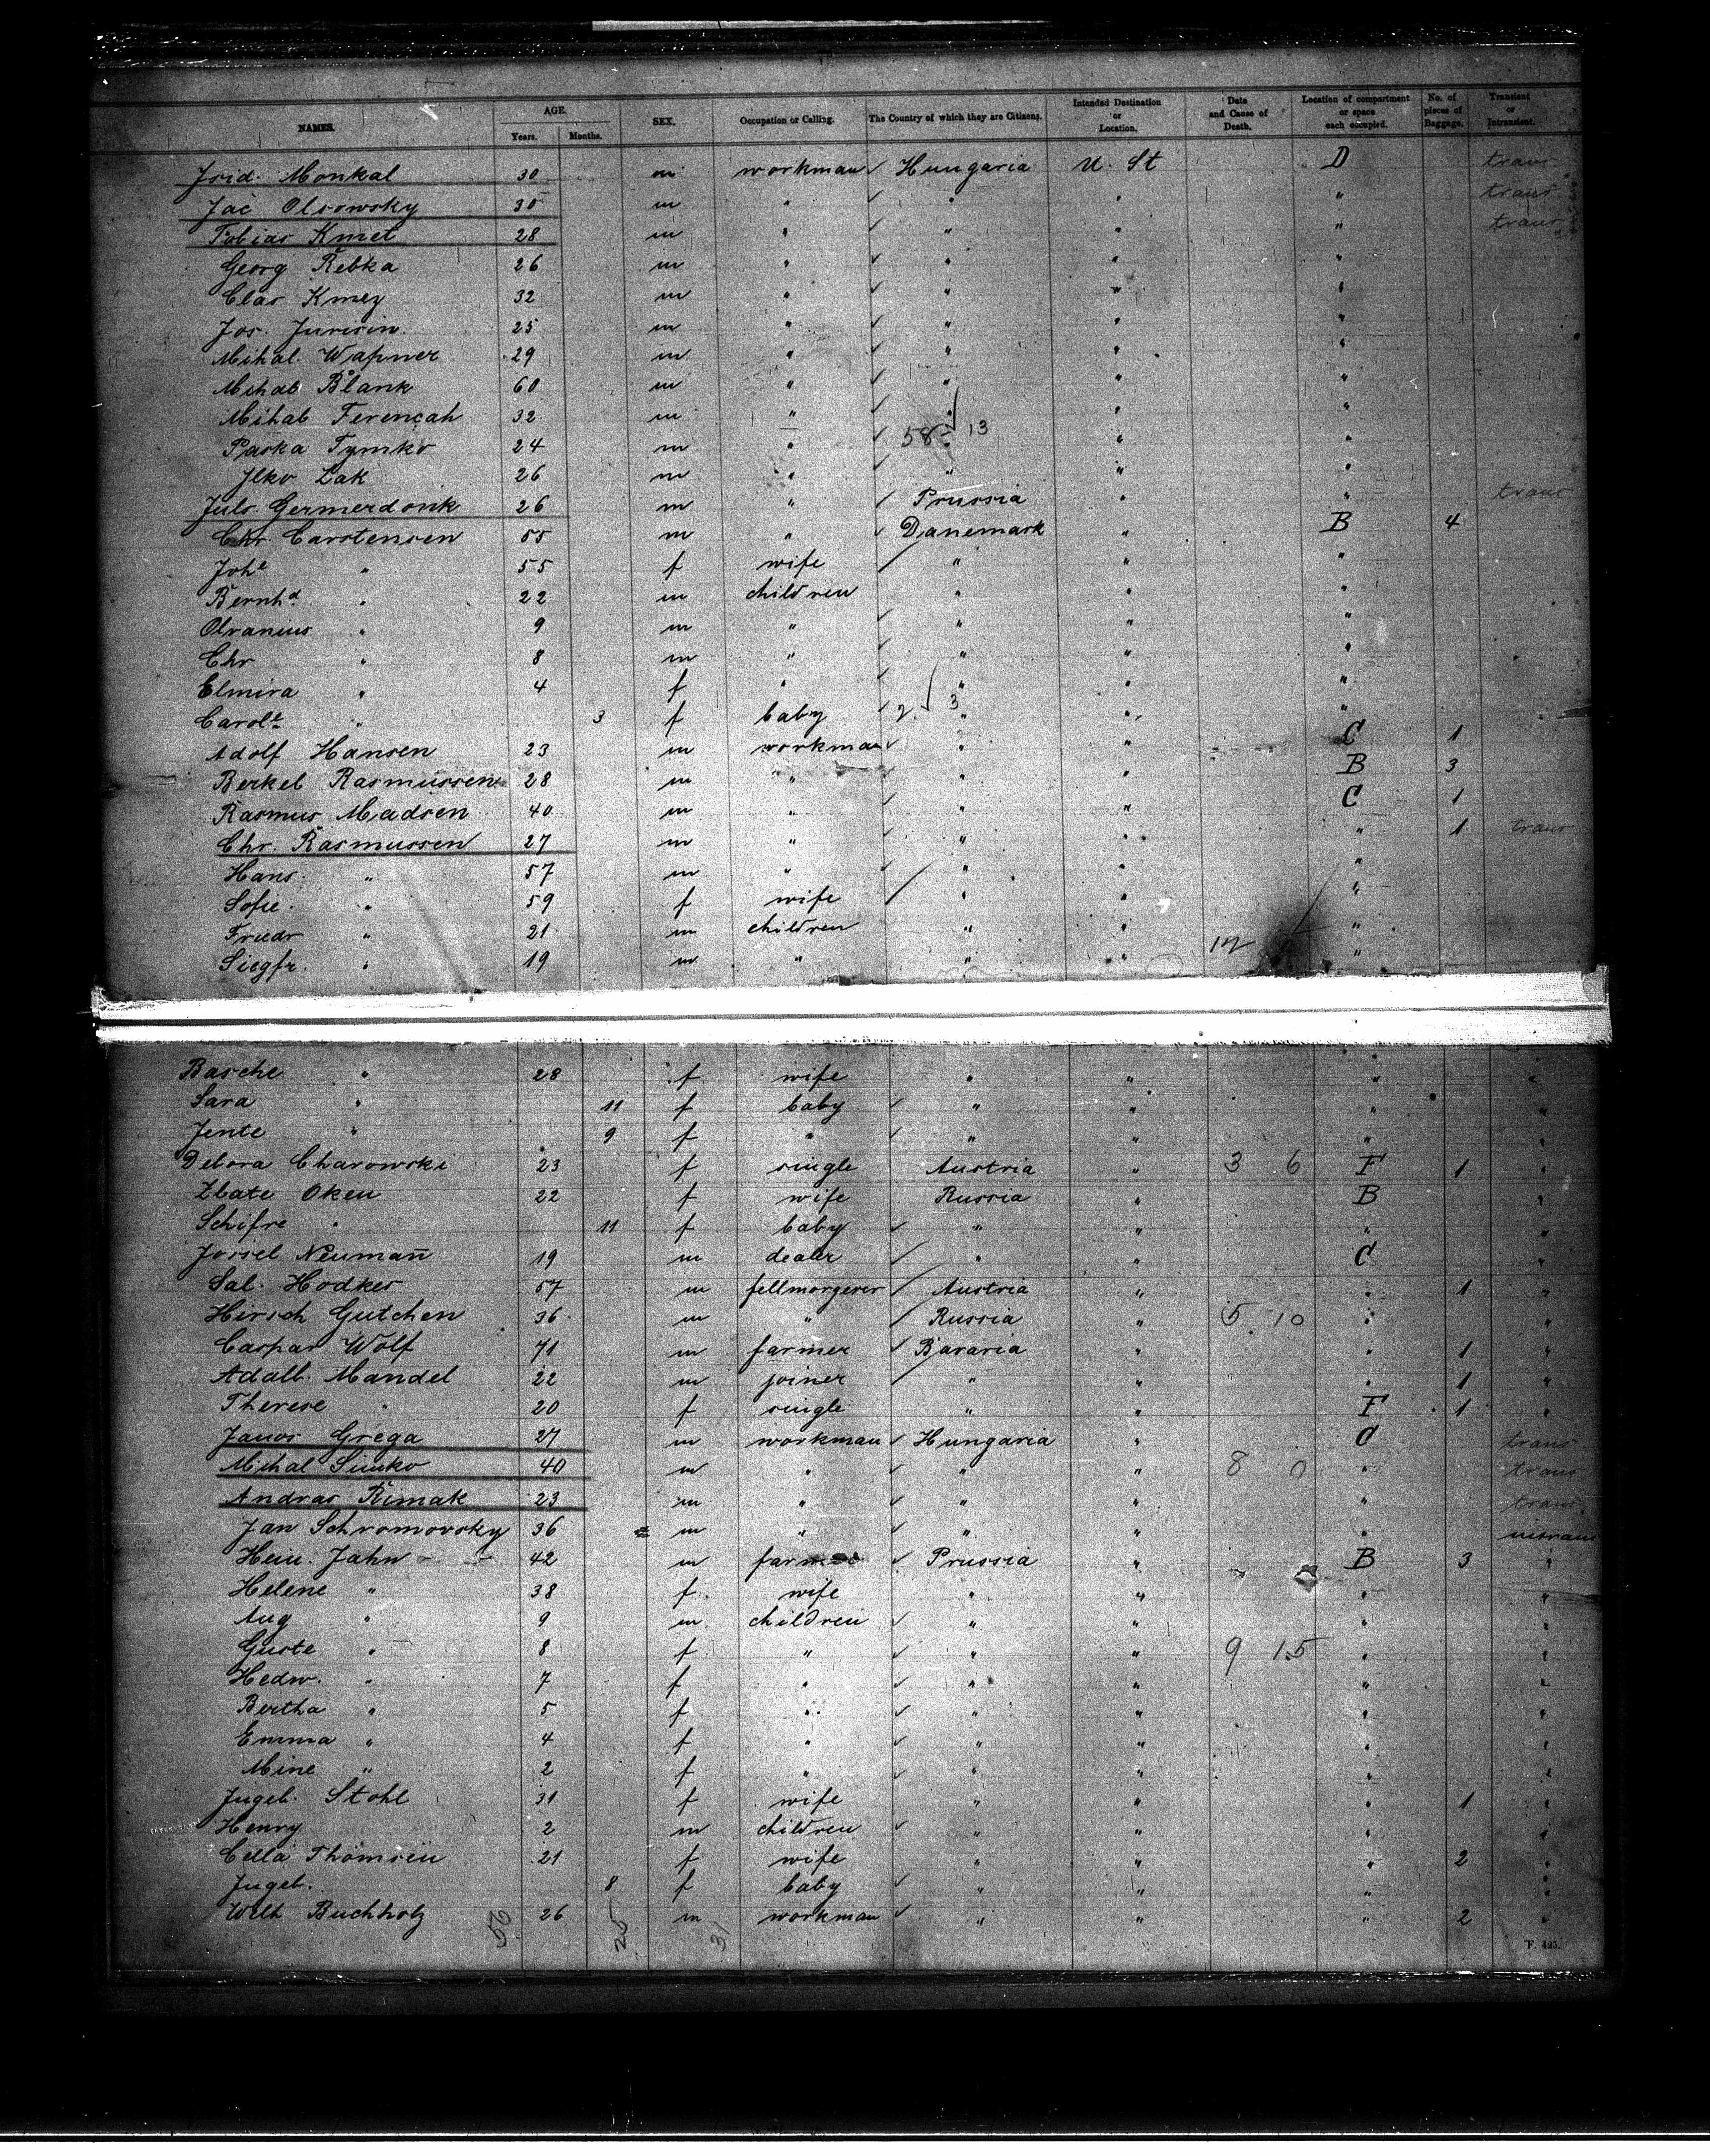 NAMES. AGE. Years. Months. SEX. Occupation or Calling. The Country of which they are Citizens. Intended Destination or Location. Date and Cause of Death. Location of compartment or space each occupied. No. of pieces of Baggage. Transient or Intransient.
Monkal 30 m workman Hungaria U. St D trans
Jac Olsowsky 30 m " " " " trans
Tobias Kmet 28 m " " " " trans
Georg Rebka 26 m " " " "
Clas Kmez 32 m " " " "
Jos. Jurisin 25 m " " " "
Mihal. Wapner 29 m " " " "
Mihal Blank 60 m " " " "
Mihal Ferencah 32 m " " " "
Paska Tymko 24 m " 58 13 " "
Ilko Lak 26 m " " " "
Juls Germerdonk 26 m " Prussia " " trans
Chr Carstensen 55 m " Danemark " B 4
Johe " 55 f wife " " "
Bernhd " 22 m children " " "
Olranius " 9 m " " " "
Chr " 8 m " " " "
Elmira " 4 f " " " "
Carolt " 3 f baby 2 3 " " "
Adolf Hansen 23 m workman " " C 1
Berkel Rasmussen 28 m " " " B 3
Rasmus Madsen 40 m " " " C 1
Chr. Rasmussen 27 m " " " " 1 trans
Hans " 57 m " " " "
Sofie " 59 f wife " " "
Friedr " 21 m children " " "
Siegfr. " 19 m " " " 12 "
Basche " 28 f wife " " " "
Sara " 11 f baby " " " "
Jente " 9 f " " " " "
Debora Charowski 23 f single Austria " 3 6 F 1 "
Zlate Oken 22 f wife Russia " B "
Schifre " 11 f baby " " " "
Jossel Neumann 19 m dealer " " C "
Sal. Hodkes 57 m fellmorgerer Austria " " 1 "
Hirsch Gutchen 36 m " Russia " 5 10 " "
Caspar Wolf 71 m farmer Bavaria " " 1 "
Adalb. Mandel 22 m joiner " " " 1 "
Therese " 20 f single " " F 1 "
Janos Grega 27 m workman Hungaria " C trans
Mihal Simko 40 m " " " 8 0 " trans
Andras Rimak 23 m " " " " trans
Jan Schromovsky 36 m " " " " intrans
Hein. Jahn 42 m farmer Prussia " B 3 "
Helene " 38 f wife " " " "
Aug " 9 m children " " " "
Guste " 8 f " " " 9 15 " "
Hedw. " 7 f " " " " "
Bertha " 5 f " " " " "
Emma " 4 f " " " " "
Mine " 2 f " " " " "
Ingeb. Stohl 31 f wife " " " 1 "
Henry 2 m children " " " "
Cella Thomsen 21 f wife " " " 2 "
Ingeb. 8 f baby " " " "
Wilh Buchholz 26 m workman " " " 2 "
56 25 31
F. 425.